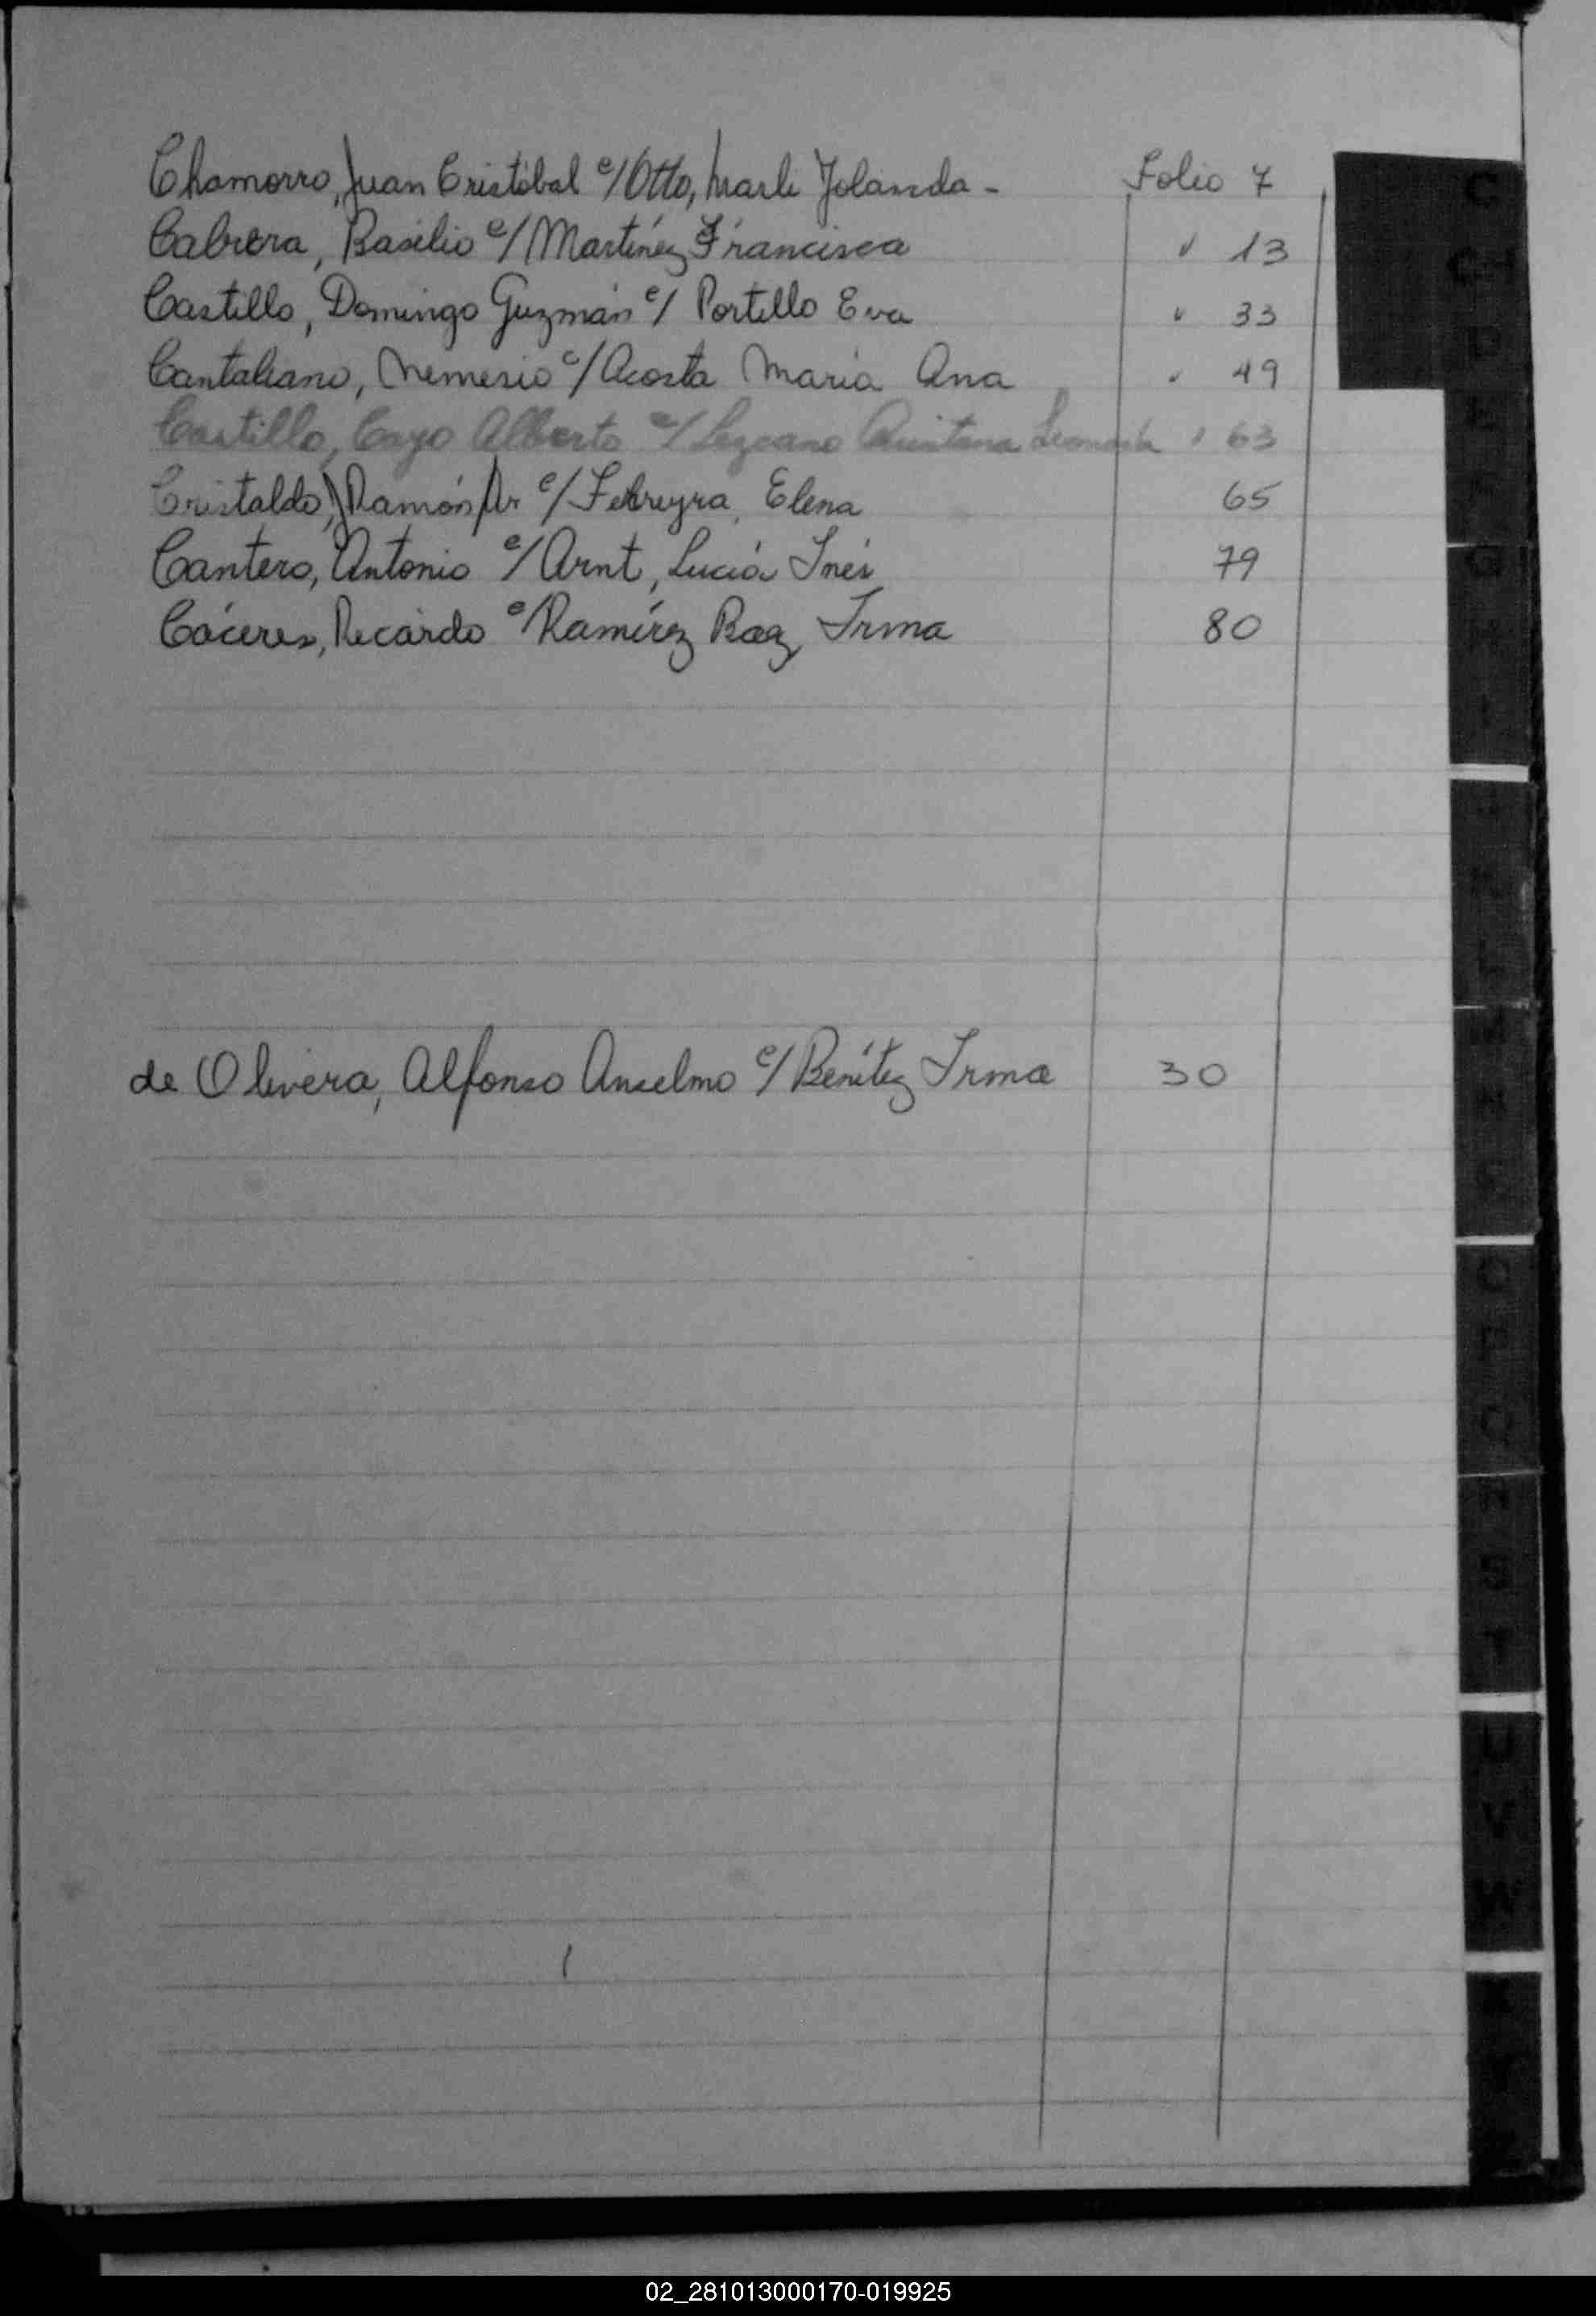 Chamorro, Juan Cristóbal c/ Otto, Marli Yolanda - Folio 7
Cabrera, Basilio c/ Martínez Francisca " 13
Castillo, Domingo Guzmán c/ Portillo Eva " 33
Cantaliano, Nemesio c/ Acosta María Ana " 49
Castillo, Cayo Alberto c/ Lezcano Quintana " 63
Cristaldo, Ramón c/ Elena 65
Cantero, Antonio c/ Arnt, Lucía Inés 79
Cáceres, Ricardo c/ Ramírez Irma 80
de Olivera, Alfonso Anselmo c/ Benítez Irma 30
C
CH
D
G
L
O
P
Q
S
T
U
V
W
Z
02_281013000170-019925